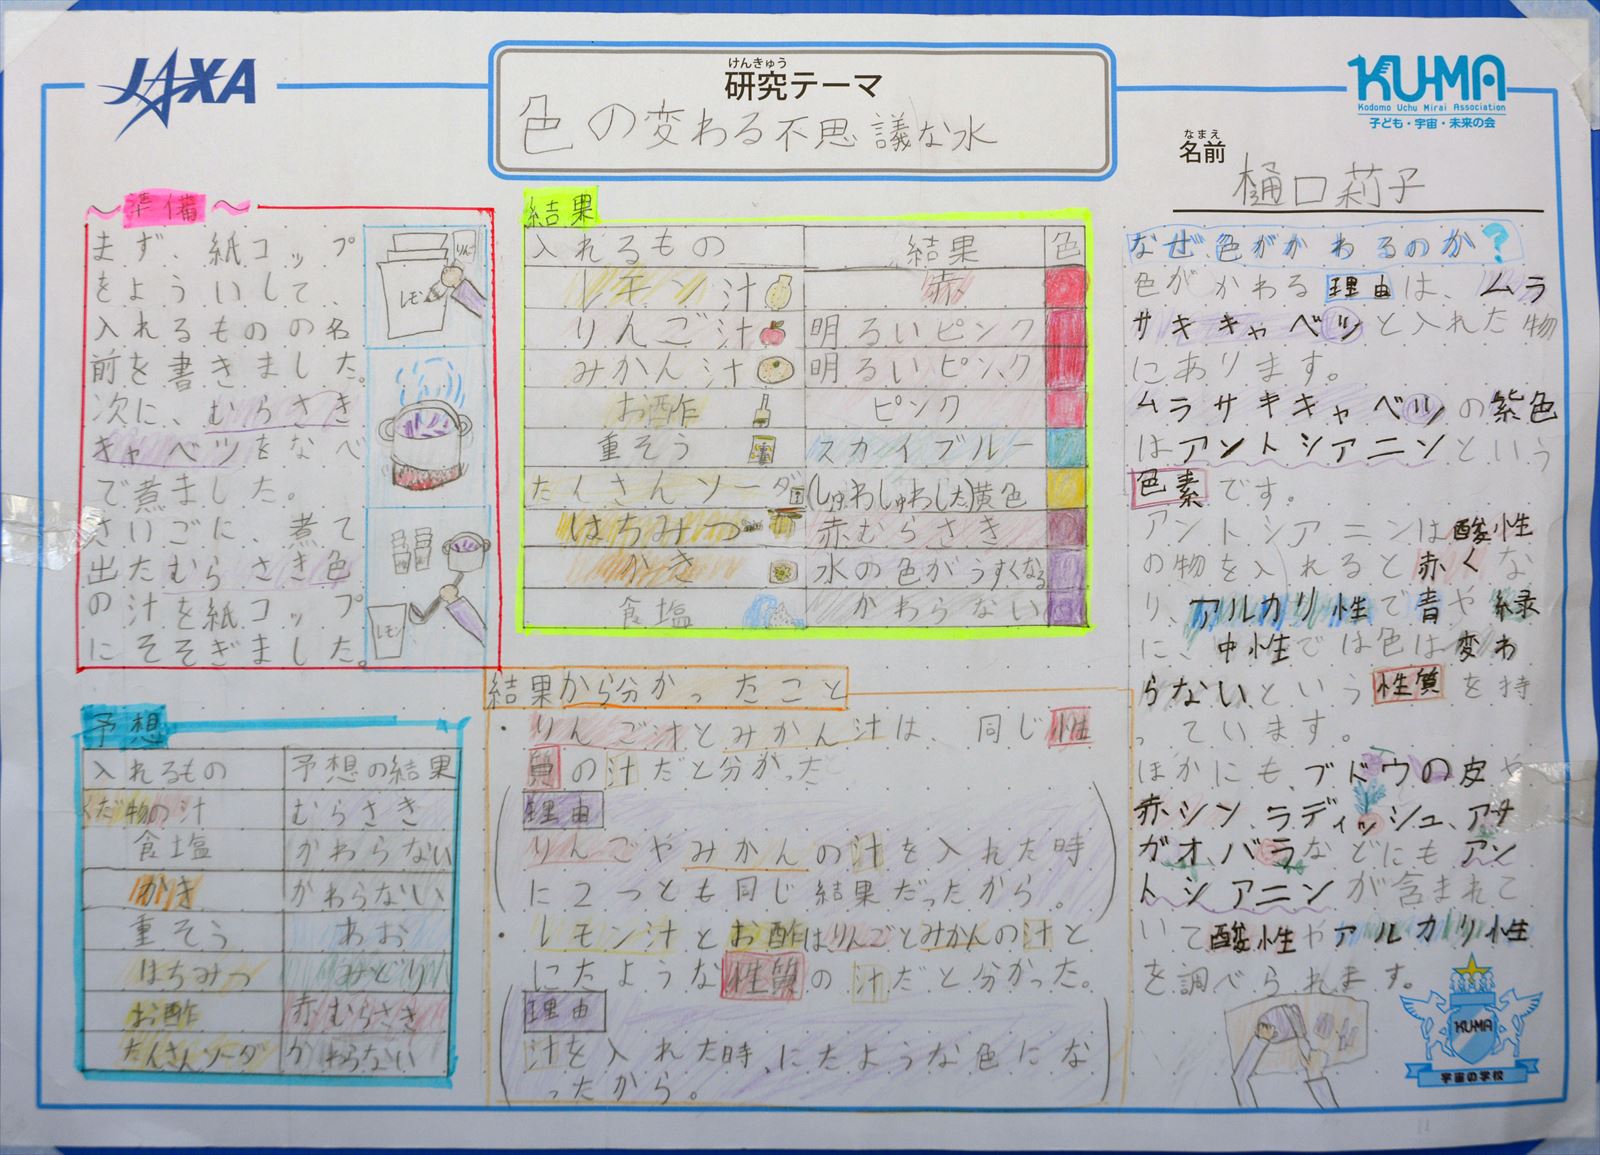 JAXA
けんきゅう
研究テーマ
色の変わる不思議な水
KU-MA
Kodomo Uchu Mirai Association
子ども・宇宙・未来の会
なまえ
名前
樋口莉子
～準備～
まず、紙コップ
をよういして、
入れるものの名
前を書きました。
次に、むらさき
キャベツをなべ
で煮ました。
さいごに、煮て
出たむらさき色
の汁を紙コップ
にそそぎました。
りんご
レモン
レモン
予想
入れるもの 予想の結果
くだ物の汁 むらさき
食塩 かわらない
かき かわらない
重そう あお
はちみつ みどり
お酢 赤むらさき
たんさんソーダ かわらない
結果
入れるもの 結果 色
レモン汁 赤
りんご汁 明るいピンク
みかん汁 明るいピンク
お酢 ピンク
重そう スカイブルー
たんさんソーダ (しゅわしゅわした)黄色
はちみつ 赤むらさき
かき 水の色がうすくなる
食塩 かわらない
結果から分かったこと
・りんご汁とみかん汁は、同じ性
質の汁だと分かった
理由
りんごやみかんの汁を入れた時
に2つとも同じ結果だったから。
・レモン汁とお酢はりんごとみかんの汁と
にたような性質の汁だと分かった。
理由
汁を入れた時、にたような色にな
ったから。
なぜ色がかわるのか?
色がかわる理由は、ムラ
サキキャベツと入れた物
にあります。
ムラサキキャベツの紫色
はアントシアニンという
色素です。
アントシアニンは酸性
の物を入れると赤くな
り、アルカリ性で青や緑
に、中性では色は変わ
らないという性質を持
っています。
ほかにも、ブドウの皮や
赤シソ、ラディッシュ、アサ
ガオ、バラなどにもアン
トシアニンが含まれて
いて酸性やアルカリ性
を調べられます。
KU-MA
宇宙の学校